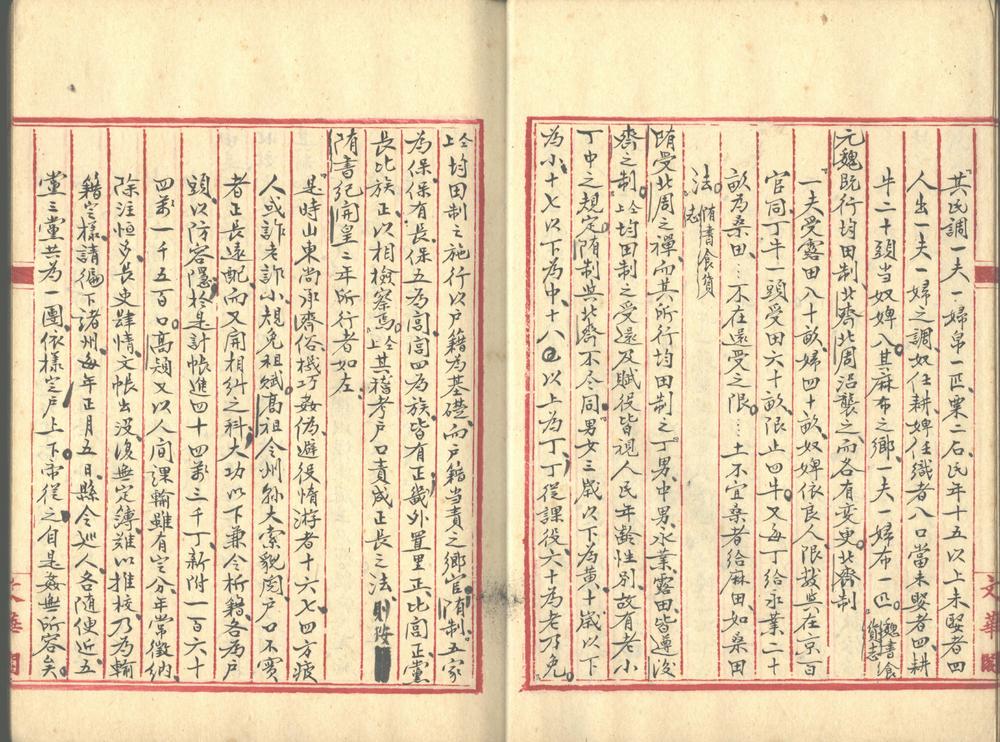 其民調一夫一婦帛一匹粟二石民年十五以上未娶者四
人出一夫一婦之調奴任耕婢任織者八口當未娶者四耕
牛二十頭当奴婢八其麻布之鄉一夫一婦布一匹。魏書食貨志
元魏既行均田制北齊北周沿襲之而各有变更北齊制
一夫受露田八十畝婦四十畝奴婢依良人限数與在京百
官同丁牛一頭受田六十畝限止四牛。又每丁給永業二十
畝為桑田…不在還受之限。…土不宜桑者給麻田如桑田
法。隋書食貨志
隋受北周之禪而其所行均田制之丁男中男永業露田皆遵後
齊之制。仝上均田制之受還及賦役皆視人民年齡性別故有老小
丁中之規定隋制與北齊不尽同男女三歲以下為黄十歲以下
為小十七以下為中十八以上為丁丁從課役六十為老乃免。
仝上均田制之施行以戶籍為基礎而戶籍当責之鄉官隋制。五家
為保保有長保五為閭閭四為族皆有正畿外置里正比閭正黨
長比族正以相檢察焉。仝上其稽考戶口責成正長之法則攷
隋書紀開皇二年所行者如左
是時山東尚承齊俗機巧姦偽避役惰游者十六七四方疲
人或詐老詐小規免租賦。高祖令州縣大索貌閱戶口不實
者正長遠配而又開相糾之科大功以下兼令析籍各為戶
頭以防容隱。於是計帳進四十四萬三千丁新附一百六十
四萬一千五百口。高熲又以人間課輸雖有定分年常徵納
除注恒多長吏肆情文帳出没復無定簿難以推校乃為輸
籍定樣請徧下諸州每年正月五日縣令巡人各隨便近五
黨三黨共為一團依樣定戶上下。帝從之。自是姦無所容矣。
文華閣